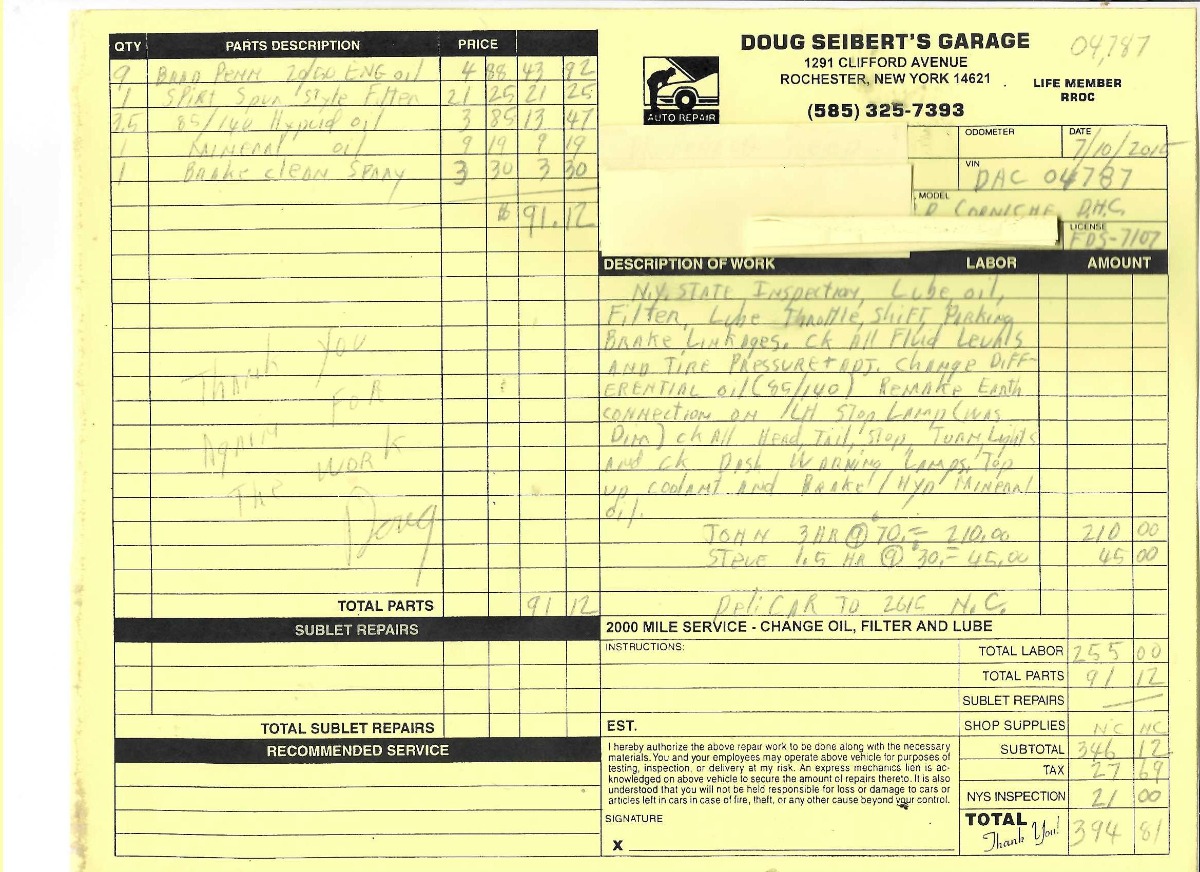 QTY PARTS DESCRIPTION PRICE
9 BRAD PENN 20/50 ENG OIL 4 88 43 92
1 SPIRT Spun Style Filter 21 25 21 25
3.5 85/140 Hypoid oil 3 85 13 47
1 MINERAL oil 9 19 9 19
1 BRAKE Clean SPRAY 3 30 3 30
$ 91.12
Thank You
FOR
Again
THE WORK
Doug
TOTAL PARTS 91 12
SUBLET REPAIRS
TOTAL SUBLET REPAIRS
RECOMMENDED SERVICE
AUTO REPAIR
DOUG SEIBERT'S GARAGE
1291 CLIFFORD AVENUE
ROCHESTER, NEW YORK 14621
(585) 325-7393
04787
LIFE MEMBER
RROC
ODOMETER
DATE
7/10/2015
VIN
DAC 04787
MODEL
CORNICHE D.H.C.
LICENSE
FDS-7107
DESCRIPTION OF WORK LABOR AMOUNT
N.Y. STATE Inspection, Lube, oil,
Filter, Lube Throttle, Shift, Parking
BRAKE Linkages. CK All Fluid Levels
AND TIRE PRESSURE + ADJ. Change DIFF-
ERENTIAL oil (85/140) REMAKE Earth
CONNECTION ON LH Stop Lamp (was
Dim) CK All Head, Tail, Stop, Turn, Lights
And CK Dash Warning Lamps, Top
up Coolant And Brake / Hyd Mineral
oil.
JOHN 3 HR @ $70.= 210.00 210 00
STEVE 1.5 HR @ $30.= 45.00 45 00
Deli CAR TO 261S N.C.
2000 MILE SERVICE - CHANGE OIL, FILTER AND LUBE
INSTRUCTIONS:
EST.
I hereby authorize the above repair work to be done along with the necessary
materials. You and your employees may operate above vehicle for purposes of
testing, inspection, or delivery at my risk. An express mechanics lien is ac-
knowledged on above vehicle to secure the amount of repairs thereto. It is also
understood that you will not be held responsible for loss or damage to cars or
articles left in cars in case of fire, theft, or any other cause beyond your control.
SIGNATURE
X
TOTAL LABOR 255 00
TOTAL PARTS 91 12
SUBLET REPAIRS —
SHOP SUPPLIES NC NC
SUBTOTAL 346 12
TAX 27 69
NYS INSPECTION 21 00
TOTAL Thank You! 394 81